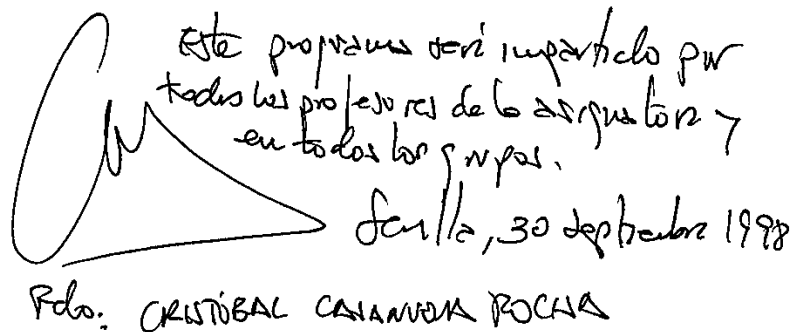 Este programa será impartido por
todos los profesores de la asignatura y
en todos los grupos.
Sevilla, 30 septiembre 1998
Fdo.: CRISTÓBAL CASANUEVA ROCHA